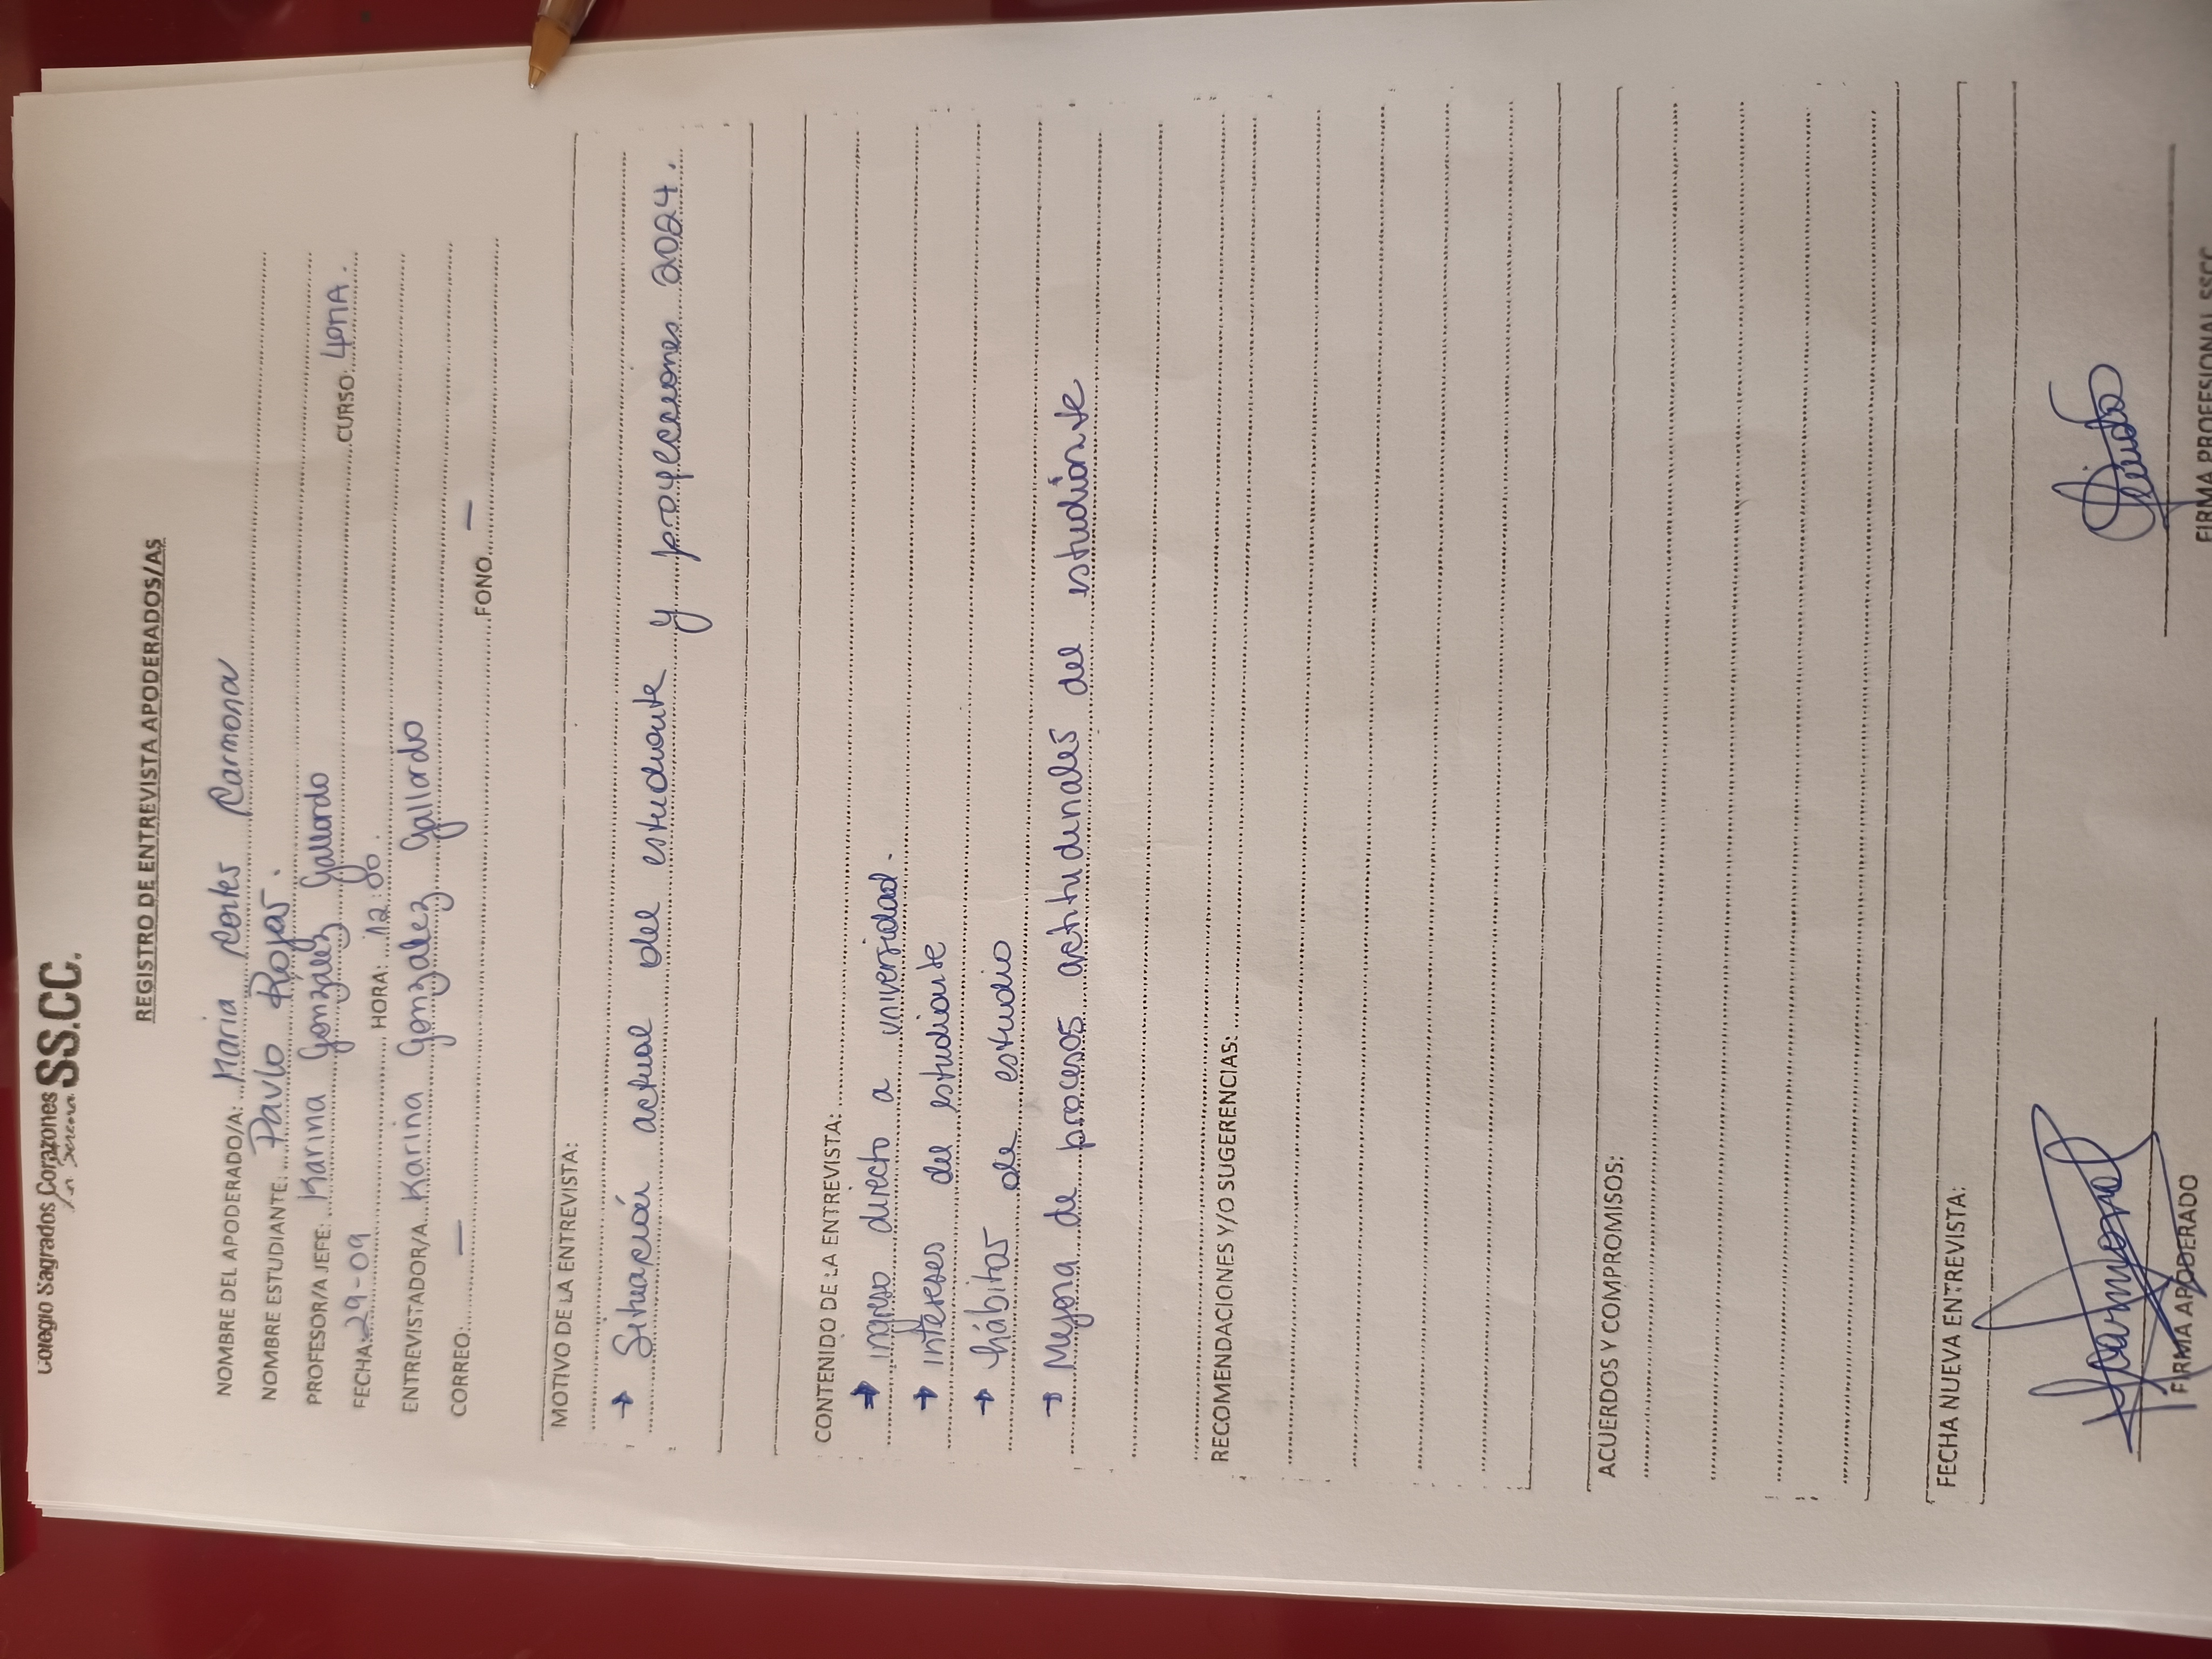 Colegio Sagrados Corazones SS.CC.
La Serena
REGISTRO DE ENTREVISTA APODERADOS/AS
NOMBRE DEL APODERADO/A: Maria Cortes Carmona
NOMBRE ESTUDIANTE: Pavlo Rojas.
PROFESOR/A JEFE: Karina Gonzalez Gallardo CURSO: 4ºMA.
FECHA: 29-09 HORA: 12:00.
ENTREVISTADOR/A Karina Gonzalez Gallardo
CORREO: — FONO —
MOTIVO DE LA ENTREVISTA:
→ Situación actual del estudiante y proyecciones 2024.
CONTENIDO DE LA ENTREVISTA:
→ ingreso directo a universidad.
→ intereses del estudiante
→ hábitos de estudio
→ Mejora de procesos actitudinales del estudiante
RECOMENDACIONES Y/O SUGERENCIAS:
ACUERDOS Y COMPROMISOS:
FECHA NUEVA ENTREVISTA:
FIRMA APODERADO FIRMA PROFESIONAL SSCC